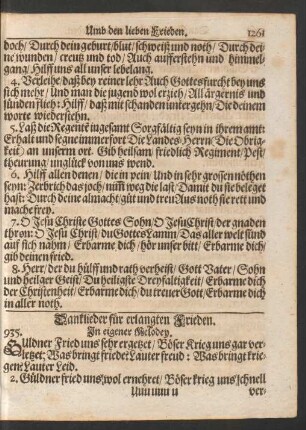 Umb den lieben Frieden. 1261
doch/ Durch dein geburt/ blut/ schweiß und noth/ Durch dei-
ne wunden/ creutz und tod/ Auch aufferstehn und himmel-
gang/ Hilff uns all unser lebelang.
4. Verleihe/ daß bey reiner lehr Auch Gottesfurcht bey uns
sich mehr/ Und man die jugend wol erzieh/ All ärgernis und
sünden flieh: Hilff/ daß mit schanden untergehn/ Die deinem
worte wiederstehn.
5. Laß die Regentē ingesamt Sorgfältig seyn in ihrem amt:
Erhalt und segne immerfort Die Landes Herrn/ Die Obrig-
keit an unserm ort. Gib heilsam friedlich Regiment/ Pest/
theurung/ unglück von uns wend.
6. Hilff allen denen/ die in pein Und in sehr grossen nöthen
seyn: Zerbrich das joch/ nim̄ weg die last/ Damit du sie beleget
hast: Durch deine almacht/ güt und treu Aus noth sie rett und
mache frey.
7. O Jesu Christe Gottes Sohn/ O Jesu Christ der gnaden
thron: O Jesu Christ/ du Gottes Lamm/ Das aller welt sünd
auf sich nahm/ Erbarme dich/ hör unser bitt/ Erbarme dich/
gib deinen fried.
8. Herr/ der du hülff und rath verheist/ Gott Vater/ Sohn
und heilger Geist/ Du heiligste Dreyfaltigkeit/ Erbarme dich
der Christenheit/ Erbarme dich/ du treuer Gott/ Erbarme dich
in aller noth.
Dancklieder für erlangten Frieden.
935. In eigener Melodey.
Güldner Fried uns sehr ergetzet/ Böser Krieg uns gar ver-
letzet: Was bringt friede? Lauter freud: Was bringt krie-
gen? Lauter Leid.
2. Güldner fried uns wol ernehret/ Böser krieg uns schnell
ver-